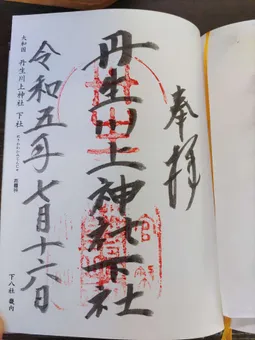 奉拝
丹生川上神社下社
令和五年七月十六日
大和国 丹生川上神社 下社
下八社 龍内